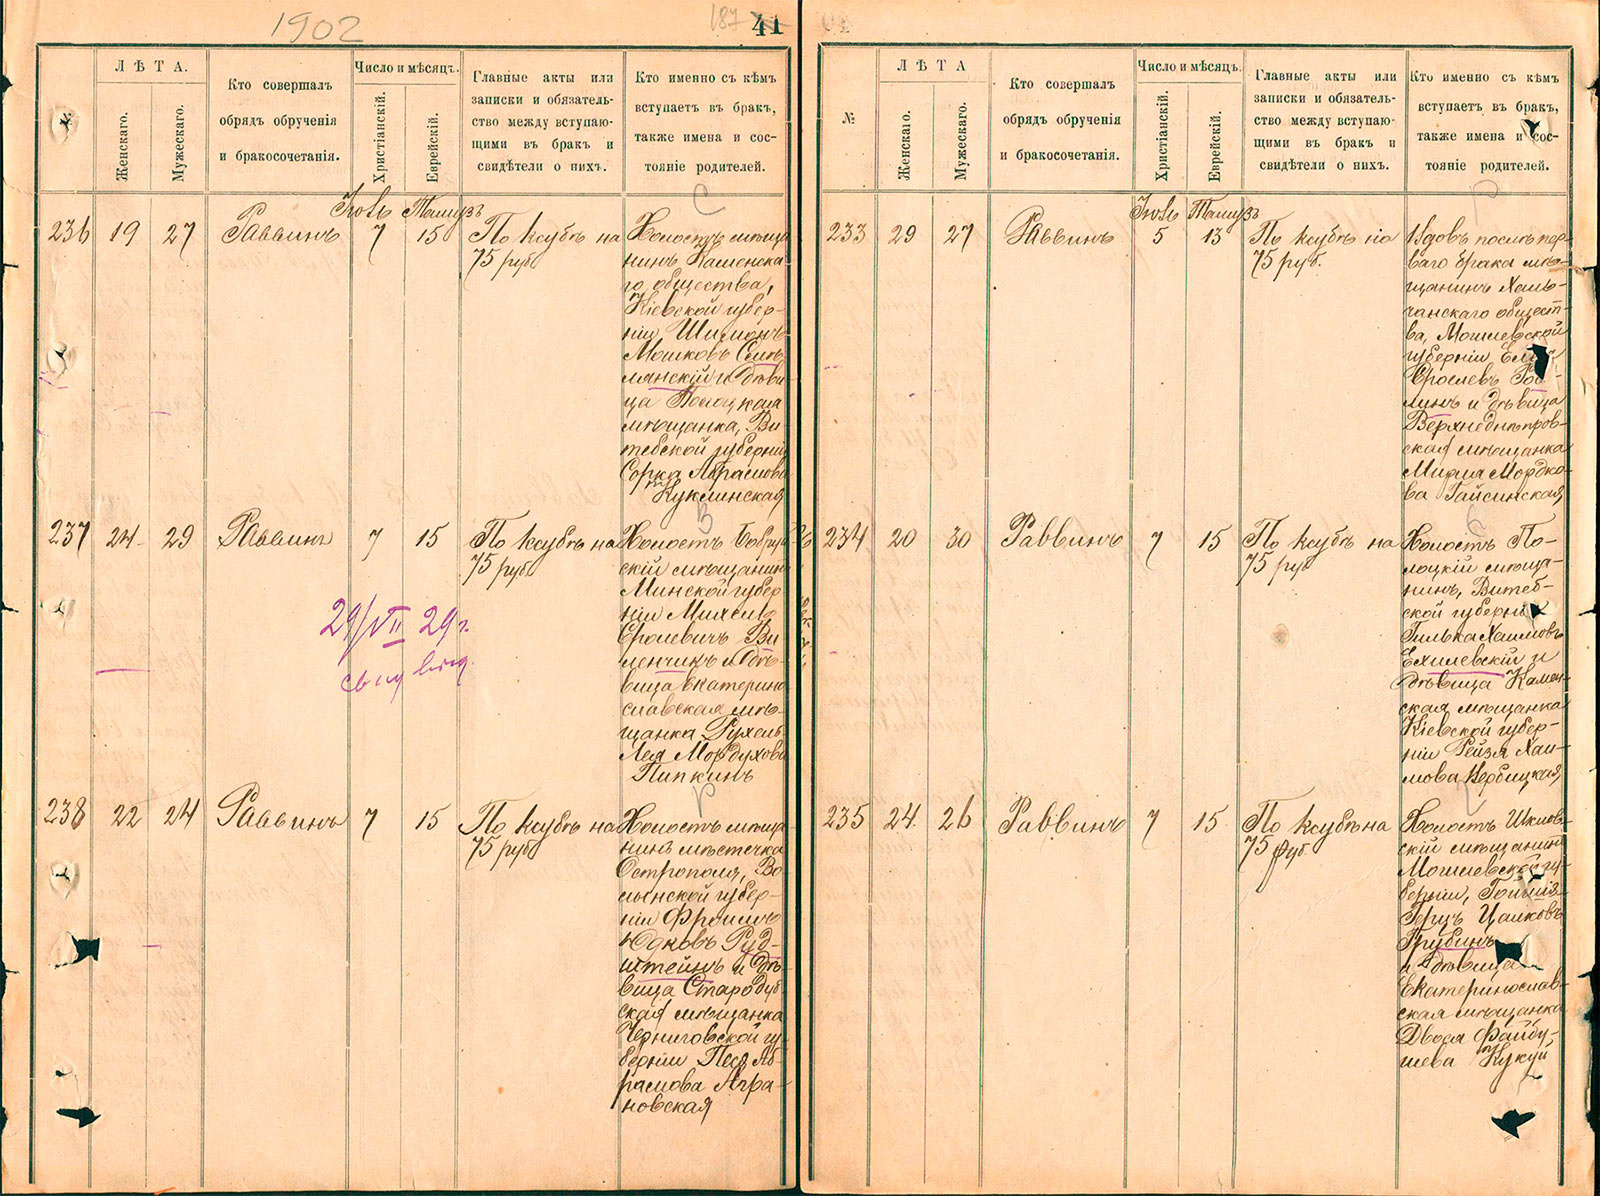 1902
187 41
ЛѢТА.
Женскаго.
Мужескаго.
Кто совершалъ
обрядъ обрученія
и бракосочетанія.
Число и мѣсяцъ.
Христіанскій.
Еврейскій.
Главные акты или
записки и обязатель-
ство между вступаю-
щими въ бракъ и
свидѣтели о нихъ.
Кто именно съ кѣмъ
вступаетъ въ бракъ,
также имена и сос-
тояніе родителей.
С
Іюль Тамузъ
236 19 27 Раввинъ 7 15
По ксубѣ на
75 руб.
Холостъ мѣща
нинъ Каменска
го общества,
Кіевской губер-
ніи Шимонъ
Мошковъ Смѣ-
лянскій и дѣви
ца Полоцкая
мѣщанка, Ви-
тебской губерніи
Сорка Абрамова
Куклинская
В
237 24 29 Раввинъ 7 15
По ксубѣ на
75 руб.
Холостъ Бобруй
скій мѣщанинъ
Минской губер
ніи Михель
Сролевичъ Ви
ленчикъ и дѣ-
вица Екатерино
славская мѣ-
щанка Рухель
Лея Мордухова
Пипкинъ
29/VII 29 г.
Р
238 22 24 Раввинъ 7 15
По ксубѣ на
75 руб.
Холостъ мѣща
нинъ мѣстечка
Острополя, Во
лынской губер-
ніи Фроимъ
Юдковъ Руд-
штейнъ и дѣ-
вица Стародуб
ская мѣщанка
Черниговской гу-
берніи Песя Аб
рамова Агра-
новская
№
ЛѢТА
Женскаго.
Мужескаго.
Кто совершалъ
обрядъ обрученія
и бракосочетанія.
Число и мѣсяцъ.
Христіанскій.
Еврейскій.
Главные акты или
записки и обязатель-
ство между вступаю-
щими въ бракъ и
свидѣтели о нихъ.
Кто именно съ кѣмъ
вступаетъ въ бракъ,
также имена и сос-
тояніе родителей.
Іюль Тамузъ
233 29 27 Раввинъ 5 13
По ксубѣ на
75 руб.
Вдовъ послѣ пер-
ваго брака мѣ-
щанинъ
чанскаго общест-
ва, Могилевской
губерніи
Сролевъ
линъ и дѣвица
Верхнеднѣпров-
ская мѣщанка
Мордко-
ва Гайсинская
234 20 30 Раввинъ 7 15
По ксубѣ на
75 руб
Холостъ По-
лоцкій мѣща-
нинъ, Витеб-
ской губерніи
Гилька Хаимовъ
Ехилевскій и
дѣвица Камен
ская мѣщанка
Кіевской губер-
ніи Рейзя Хаи-
мова Вербицкая
235 24 26 Раввинъ 7 15
По ксубѣ на
75 руб.
Холостъ Шклов-
скій мѣщанинъ
Могилевской гу-
берніи,
Герцъ Цалковъ
Грубинъ
и дѣвица
Екатеринослав-
ская мѣщанка
Двося Файбу-
шева Кукуй